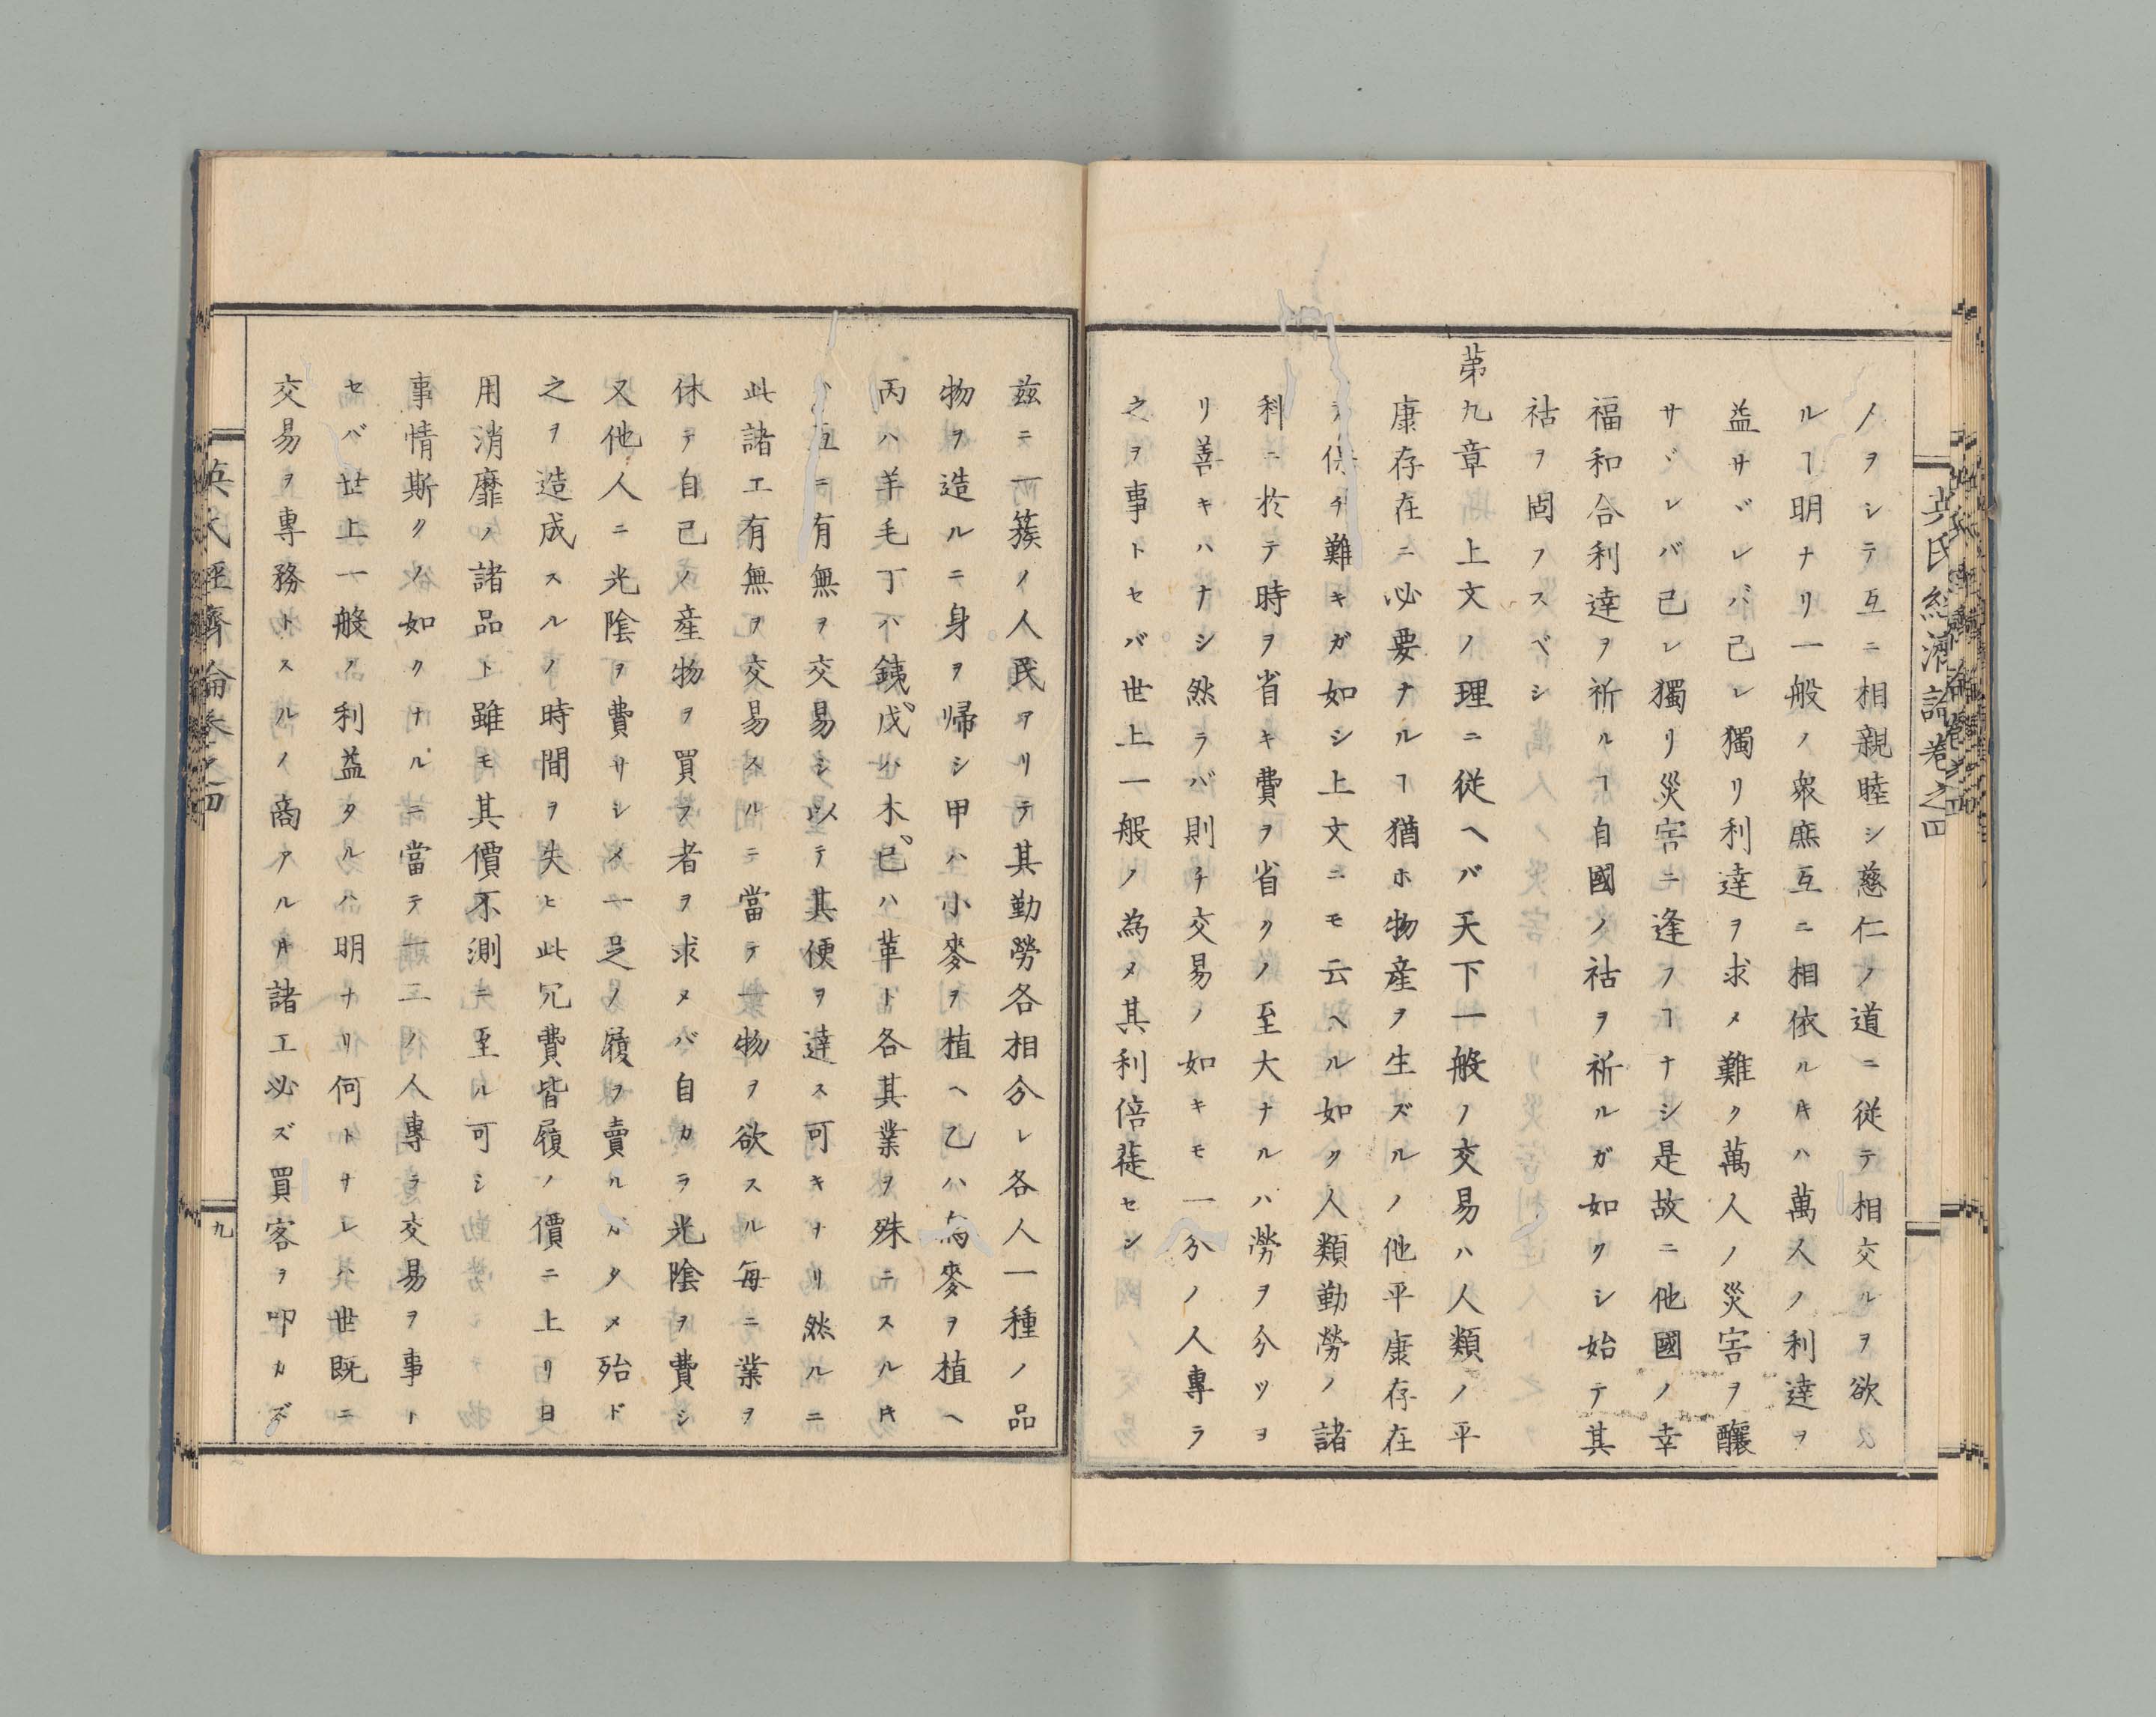 英氏經濟論卷之四
人ヲシテ互ニ相親睦シ慈仁ノ道ニ従テ相交ルヲ欲ス
ルヿ明ナリ一般ノ衆庶互ニ相依ルキハ萬人ノ利達ヲ
益サヾレバ己レ獨リ利達ヲ求メ難ク萬人ノ災害ヲ釀
サヾレバ己レ獨リ災害ニ逢フヿナシ是故ニ他國ノ幸
福和合利達ヲ祈ルヿ自國ノ祜ヲ祈ルガ如クシ始テ其
祜ヲ固フスベシ
第九章上文ノ理ニ従ヘバ天下一般ノ交易ハ人類ノ平
康存在ニ必要ナルヿ猶ホ物産ヲ生ズルノ他平康存在
ヲ保チ難キガ如シ上文ニモ云ヘル如ク人類勤勞ノ諸
科ニ於テ時ヲ省キ費ヲ省クノ至大ナルハ勞ヲ分ツヨ
リ善キハナシ然ラバ則チ交易ノ如キモ一分ノ人專ラ
之ヲ事トセバ世上一般ノ為メ其利倍蓰セシ
茲ニ一簇ノ人民アリテ其勤勞各相分レ各人一種ノ品
物ヲ造ルニ身ヲ帰シ甲ハ小麥ヲ植ヘ乙ハ麥ヲ植ヘ
丙ハ羊毛丁ハ銕戊ハ木己ハ革ト各其業ヲ殊ニスルキ
互ニ有無ヲ交易シ以テ其便ヲ達ス可キナリ然ルニ
此諸工有無ヲ交易スルニ當テ一物ヲ欲スル毎ニ業ヲ
休テ自己ノ産物ヲ買フ者ヲ求メバ自カラ光陰ヲ費シ
又他人ニ光陰ヲ費サシメ一足ノ履ヲ賣ルガタメ殆ド
之ヲ造成スルノ時間ヲ失ヒ此冗費皆履ノ價ニ上リ日
用消靡ノ諸品ト雖モ其價不測ニ至ル可シ
事情斯クノ如クナルニ當テ一二ノ人專ラ交易ヲ事ト
セバ世上一般ノ利益タルハ明ナリ何トナレハ世既ニ
交易ヲ專務トスルノ商アルキ諸工必ズ買客ヲ叩カズ
英氏經濟論卷之四
九